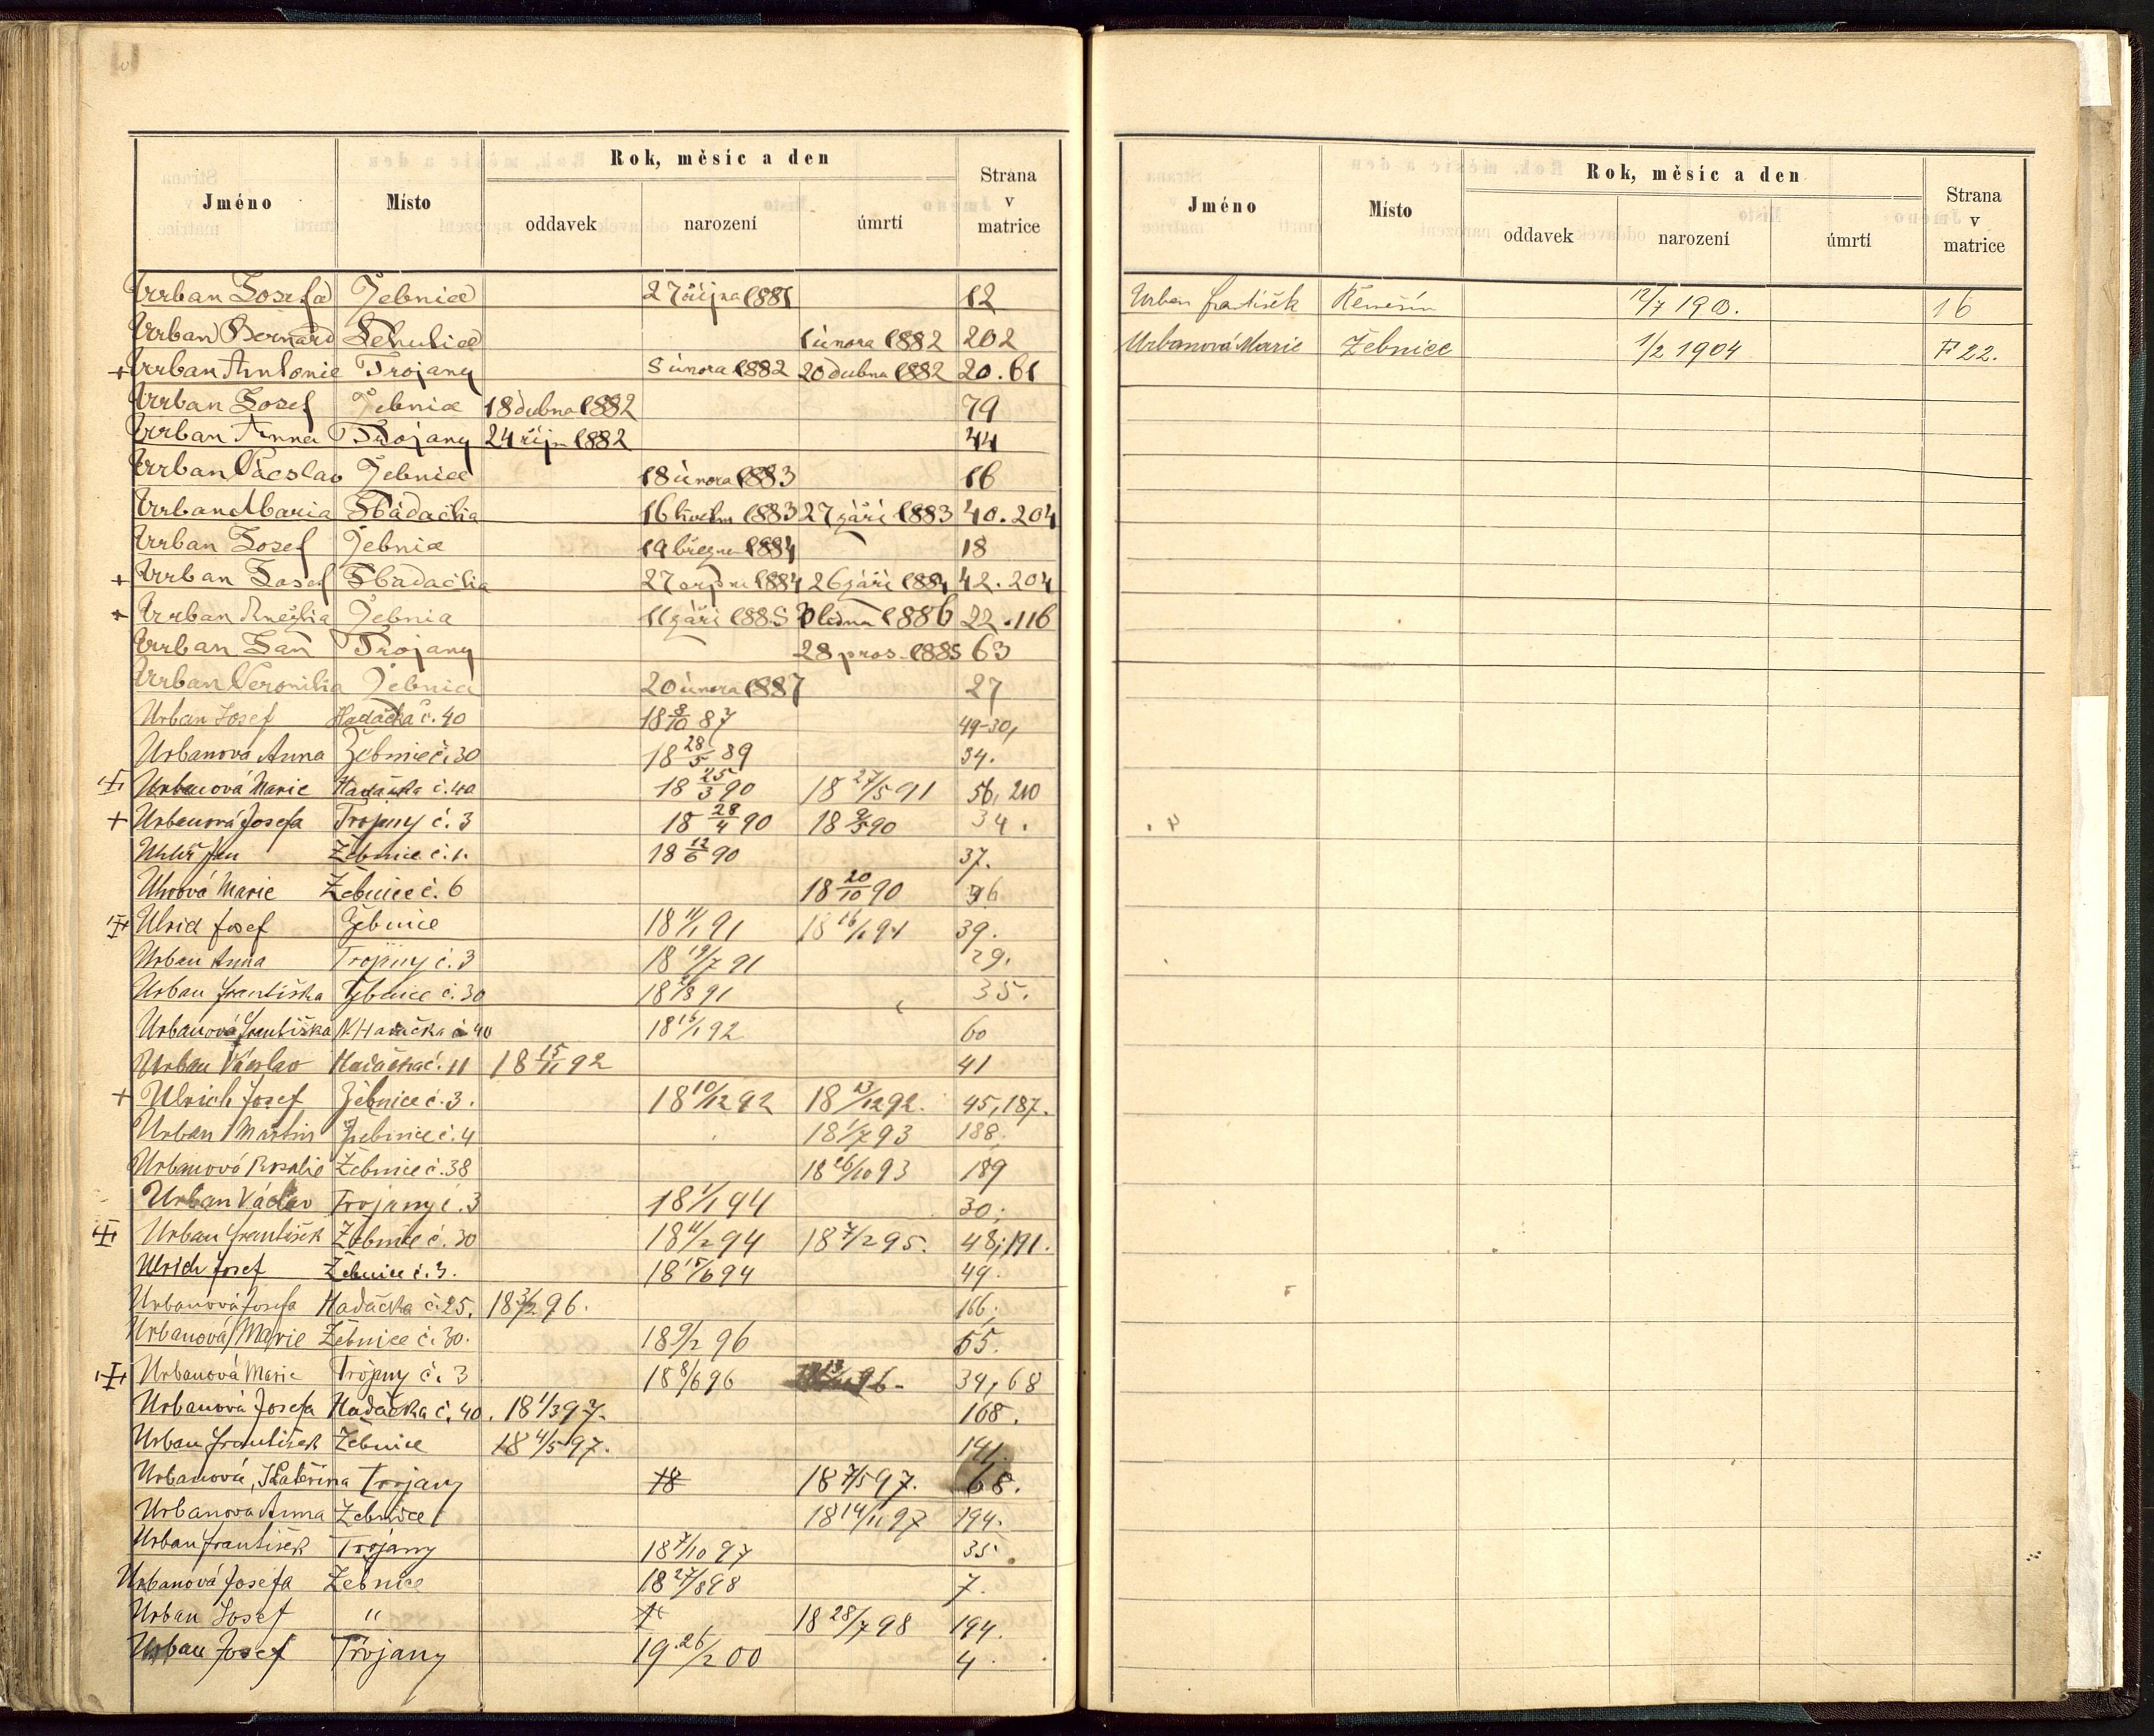 Rok, měsíc a den
Jméno Místo oddavek narození úmrtí Strana v matrice
Urban Josefa Žebnice 27 října 1881 12
Urban Bernard 1 února 1882 202
+ Urban Antonie Trojany 5 února 1882 20 dubna 1882 20.61
Urban Josef Žebnice 18 dubna 1882 79
Urban Anna Trojany 24 říjn 1882 44
Urban Václav Žebnice 18 února 1883 16
Urban Maria Hadačka 16 květn 1883 27 září 1883 40.204
Urban Josef Žebnice 19 březn 1884 18
+ Urban Josef Hadačka 27 srpna 1884 26 září 1884 42.204
+ Urban Anežka Žebnice 11 září 1885 ledna 1886 22.116
Urban Jan Trojany 28 pros. 1885 63
Urban Veronika Žebnice 20 února 1887 27
Urban Josef Hadačka č. 40 18 8/10 87 49-30,
Urbanová Anna Žebnice č. 30 18 28/5 89 34.
Urbanová Marie Hadačka č. 40 18 25/3 90 18 27/5 91 56, 210
+ Urbanová Josefa Trojany č. 3 18 28/4 90 18 9/5 90 34.
Jan Žebnice č. 1. 18 12/6 90 37.
Marie Žebnice č. 6 18 20/10 90 36
Ulrich Josef Žebnice 18 11/1 91 18 16/1 94 39.
Urban Anna Trojany č. 3 18 19/7 91 29.
Urban Františka Žebnice č. 30 91 35.
Urbanová Františka Hadačka č 40 18 16/1 92 60
Urban Václav Hadačka č. 11 18 15/11 92 41
+ Ulrich Josef Žebnice č. 3. 18 10/12 92 18 13/12 92. 45, 187.
Urban Martin Žebnice č. 4 18 1/7 93 188.
Urbanová Rosalie Žebnice č. 38 18 26/10 93 189
Urban Václav Trojany č. 3 18 1/1 94 30;
Urban František Žebnice č. 30 18 11/2 94 18 7/2 95. 48; 191.
Ulrich Josef Žebnice č. 3. 18 15/6 94 49.
Urbanová Josefa Hadačka č. 25. 18 3/2 96. 166;
Urbanová Marie Žebnice č. 30. 18 9/2 96 55.
Urbanová Marie Trojany č. 3 18 8/6 96 96 34, 68
Urbanová Josefa Hadačka č. 40. 18 1/3 97. 168.
Urban František Žebnice 18 4/5 97. 141.
Urbanová Kateřina Trojany 18 18 7/5 97. 68.
Urbanova Anna Žebnice 18 14/11 97 194.
Urban František Trojany 18 7/10 97 35.
Urbanová Josefa Žebnice 18 27/8 98 7.
Urban Josef " 18 28/7 98 194.
Urban Josef Trojany 19 26/2 00 4.
Rok, měsíc a den
Jméno Místo oddavek narození úmrtí Strana v matrice
Urban František 12/7 190 16
Urbanová Marie Žebnice 1/2 1904 F 22.